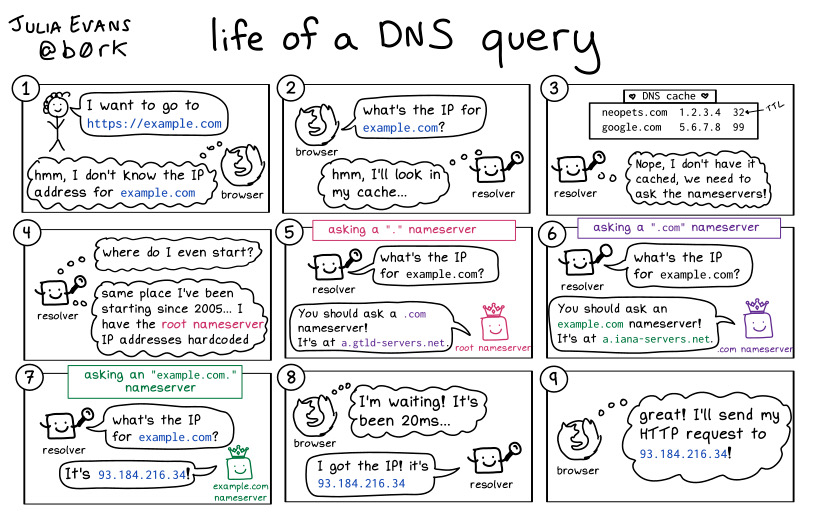 JULIA EVANS
@b0rk
life of a DNS query
1
I want to go to
https://example.com
hmm, I don't know the IP
address for example.com
browser
2
what's the IP for
example.com?
browser
hmm, I'll look in
my cache...
resolver
3
♥ DNS cache ♥
neopets.com 1.2.3.4 32
TTL
google.com 5.6.7.8 99
Nope, I don't have it
cached, we need to
ask the nameservers!
resolver
4
where do I even start?
resolver
same place I've been
starting since 2005... I
have the root nameserver
IP addresses hardcoded
5
asking a "." nameserver
what's the IP
for example.com?
resolver
You should ask a .com
nameserver!
It's at a.gtld-servers.net.
root nameserver
6
asking a ".com" nameserver
what's the IP
for example.com?
resolver
You should ask an
example.com nameserver!
It's at a.iana-servers.net.
.com nameserver
7
asking an "example.com."
nameserver
what's the IP
for example.com?
resolver
It's 93.184.216.34!
example.com
nameserver
8
I'm waiting! It's
been 20ms...
browser
I got the IP! it's
93.184.216.34
resolver
9
great! I'll send my
HTTP request to
93.184.216.34!
browser